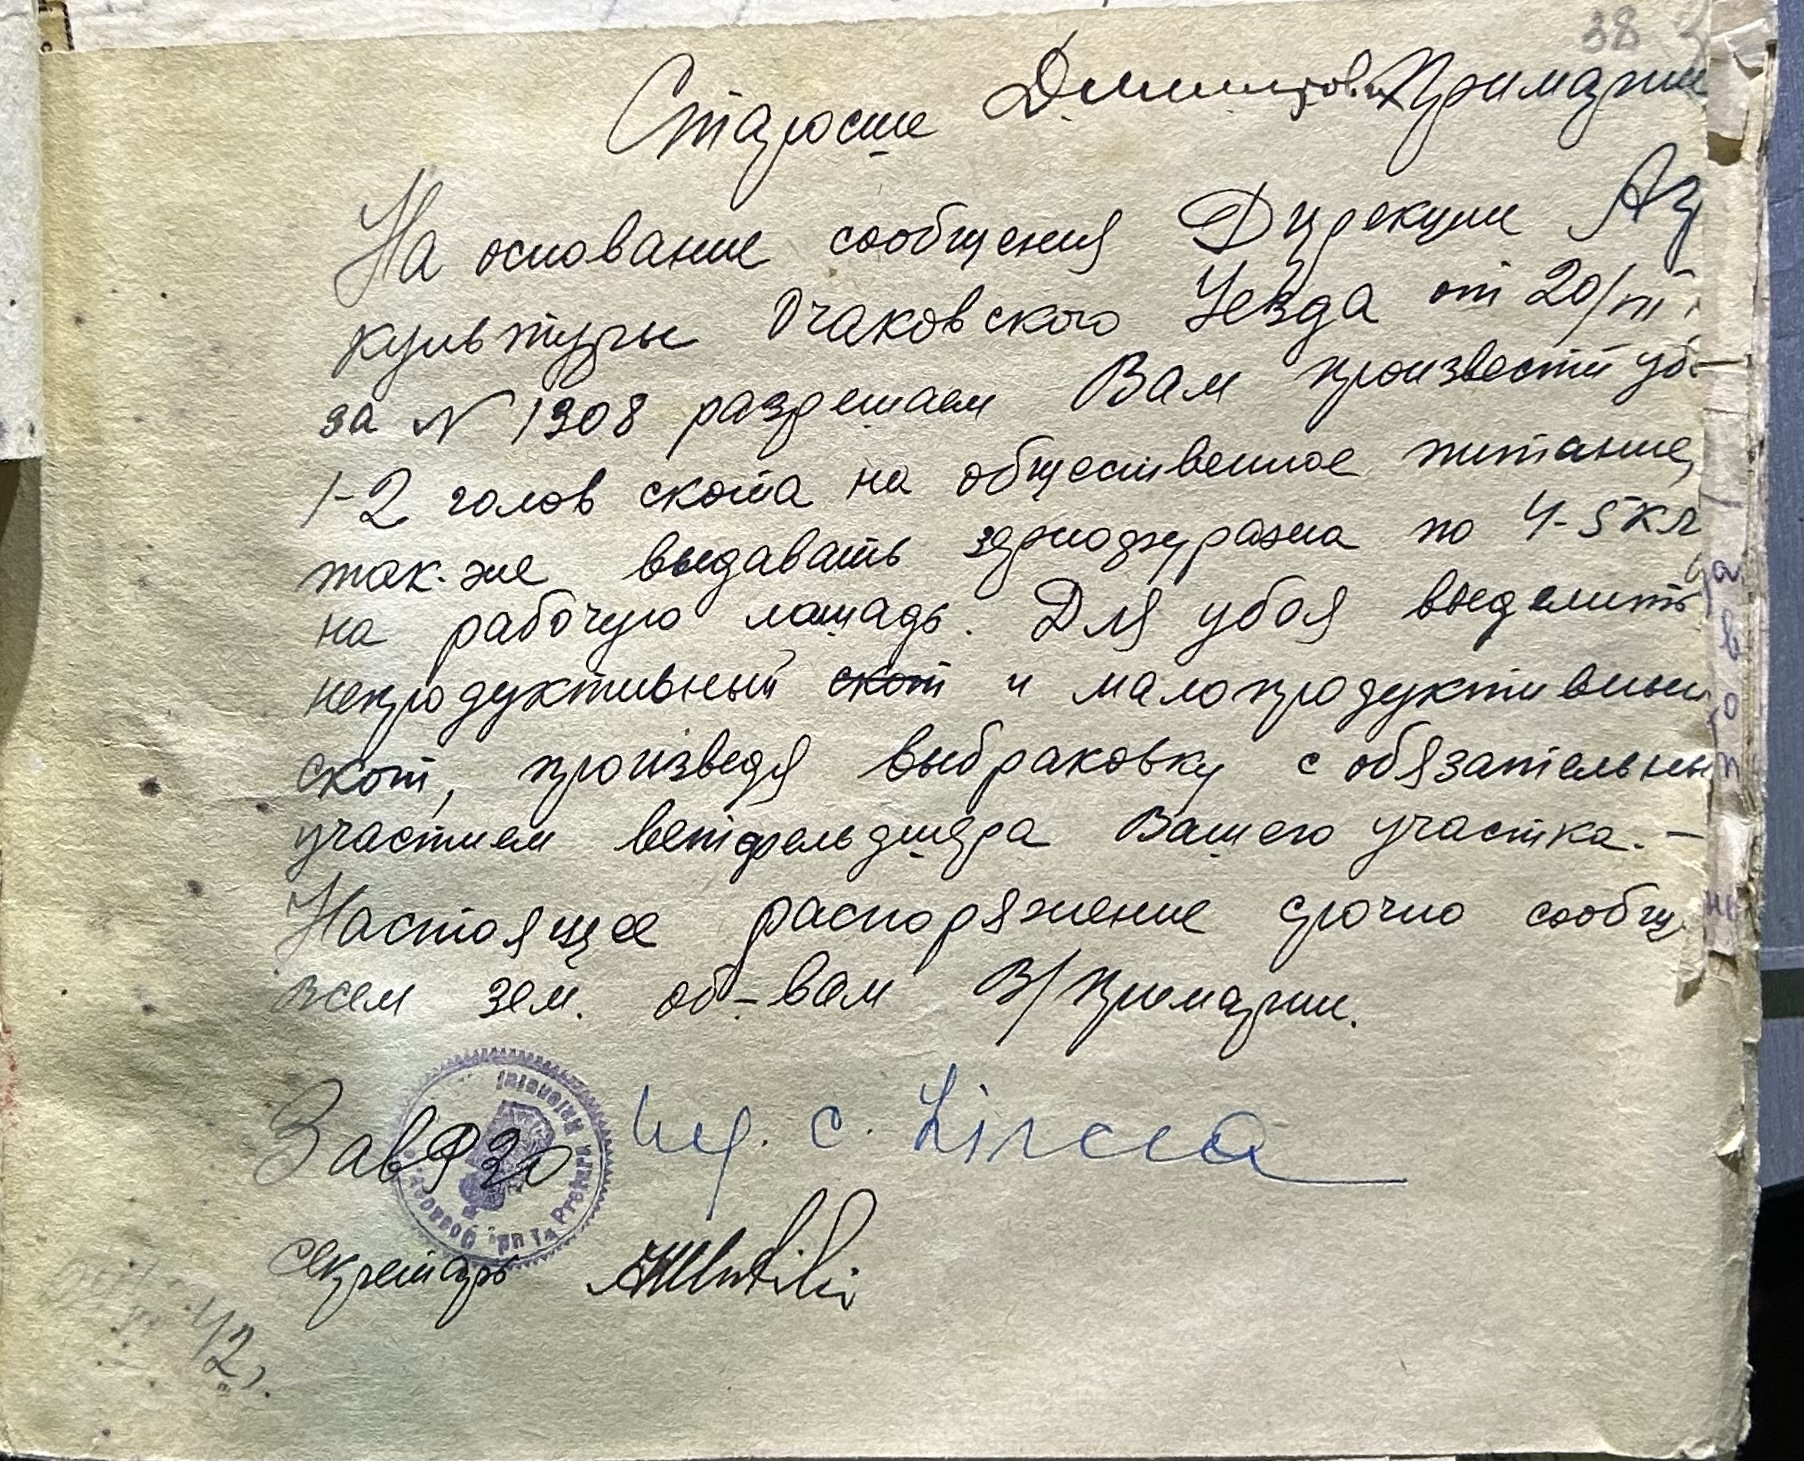 38
Старосте Дмитровск Примарии
На основание сообщения Дирекции Аг
культуры Очаковского Уезда от 20/III
за N 1308 разрешаем Вам произвести уб
1-2 голов скота на общественное питание,
так-же выдавать зернофуража по 4-5 кл
на рабочую лошадь. Для убоя выделить
непродуктивный скот и малопродуктивный
скот, произведя выбраковку с обязательны
участием ветфельдшера Вашего участка. –
Настоящее распоряжение срочно сообщ
всем зем. об-вам В/Примарии.
Зав РЗО Ing. C. Lircea
секретарь